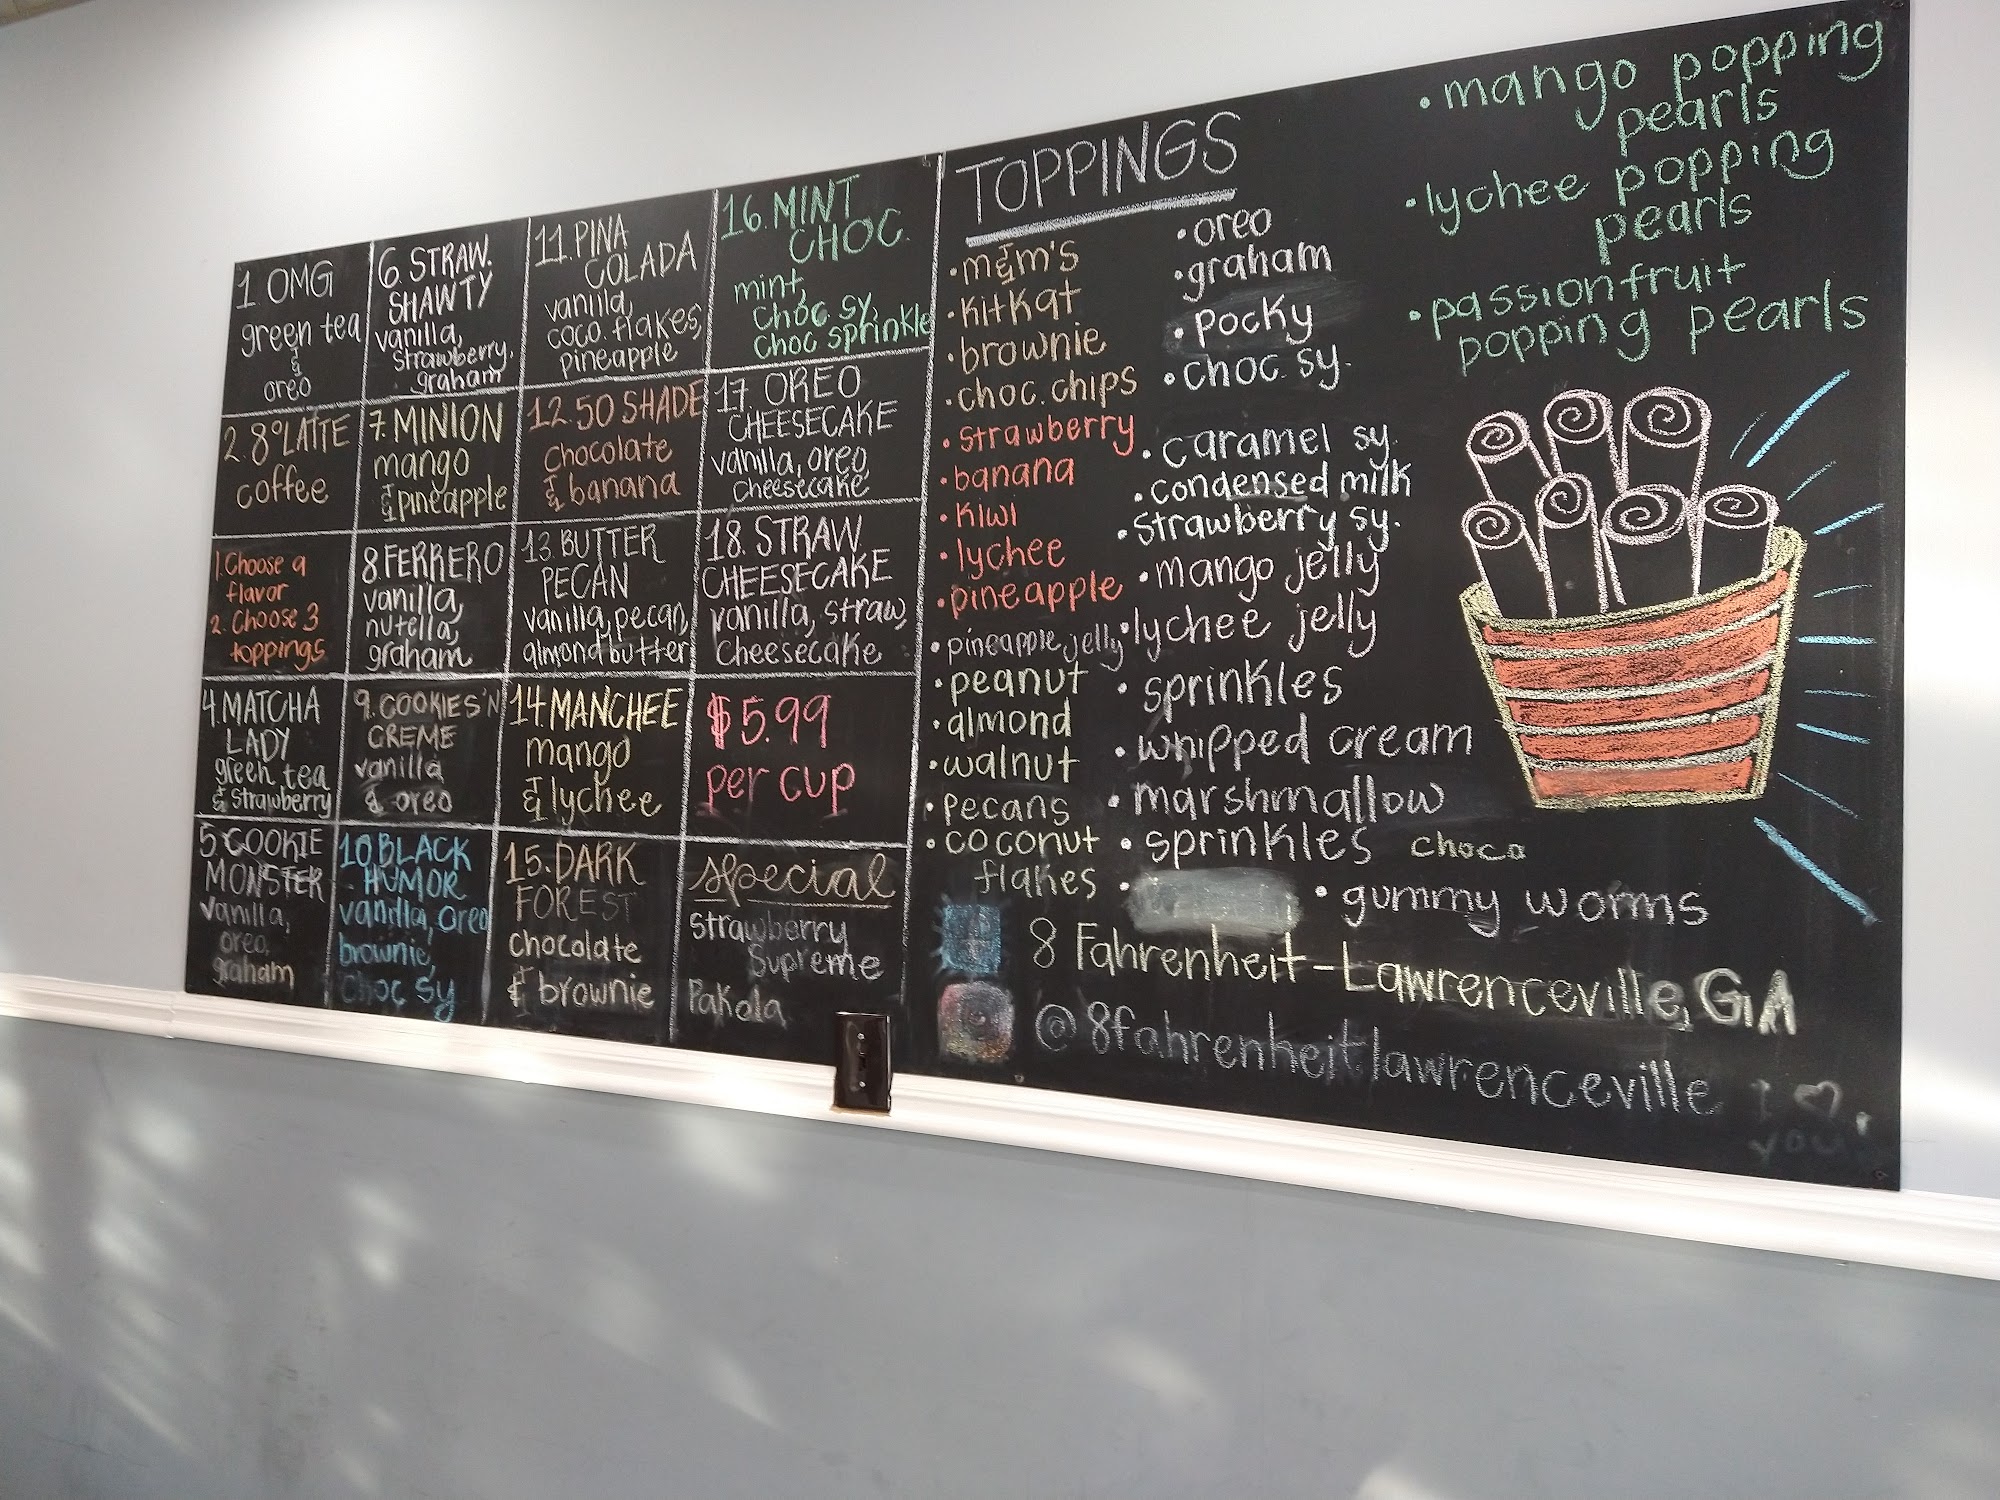 1 OMG
green tea
&
oreo
2. 8° LATTE
coffee
1. Choose a
flavor
2. Choose 3
toppings
4. MATCHA
LADY
green tea
& strawberry
5. COOKIE
MONSTER
vanilla,
oreo,
graham
6. STRAW.
SHAWTY
vanilla,
strawberry,
graham
7. MINION
mango
& pineapple
8. FERRERO
vanilla,
nutella,
graham
9. COOKIES'N
CREME
vanilla
& oreo
10. BLACK
HUMOR
vanilla, oreo
brownie,
choc sy
11. PINA
COLADA
vanilla,
coco. flakes,
pineapple
12. 50 SHADE
chocolate
& banana
13. BUTTER
PECAN
vanilla, pecan,
almond butter
14. MANCHEE
mango
& lychee
15. DARK
FOREST
chocolate
& brownie
16. MINT
CHOC.
mint,
choc sy,
choc sprinkle
17 OREO
CHEESECAKE
vanilla, oreo,
cheesecake
18. STRAW
CHEESECAKE
vanilla, straw,
cheesecake
$5.99
per cup
special
strawberry
supreme
Pakola
TOPPINGS
• m&m's
• kitkat
• brownie
• choc. chips
• strawberry
• banana
• kiwi
• lychee
• pineapple
• pineapple jelly
• peanut
• almond
• walnut
• pecans
• coconut
flakes
• oreo
• graham
• pocky
• choc. sy.
• caramel sy.
• condensed milk
• strawberry sy.
• mango jelly
• lychee jelly
• sprinkles
• whipped cream
• marshmallow
• sprinkles choco
• gummy worms
• mango popping
pearls
• lychee popping
pearls
• passionfruit
popping pearls
8 Fahrenheit-Lawrenceville, GA
@8fahrenheitlawrenceville
I ♡
you!